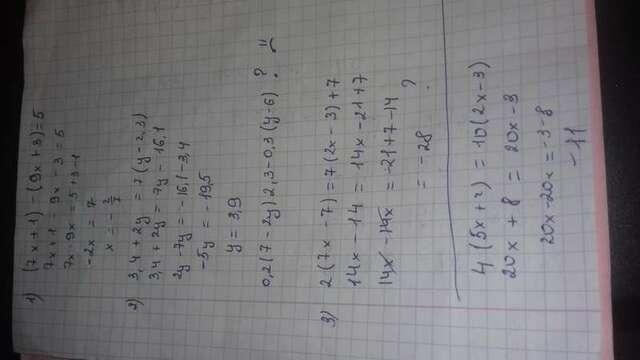 1) (7x + 1) - (9x + 3) = 5
7x + 1 - 9x - 3 = 5
7x - 9x = 5 + 3 - 1
-2x = 7
x = - 2/7
2) 3,4 + 2y = 7(y - 2,3)
3,4 + 2y = 7y - 16,1
2y - 7y = -16,1 - 3,4
-5y = -19,5
y = 3,9
0,2(7 - 2y) 2,3 - 0,3(y - 6) ?
3) 2(7x - 7) = 7(2x - 3) + 7
14x - 14 = 14x - 21 + 7
14x - 14x = -21 + 7 - 14
= -28 ?
4(5x + 2) = 10(2x - 3)
20x + 8 = 20x - 3
20x - 20x = -3 - 8
-11